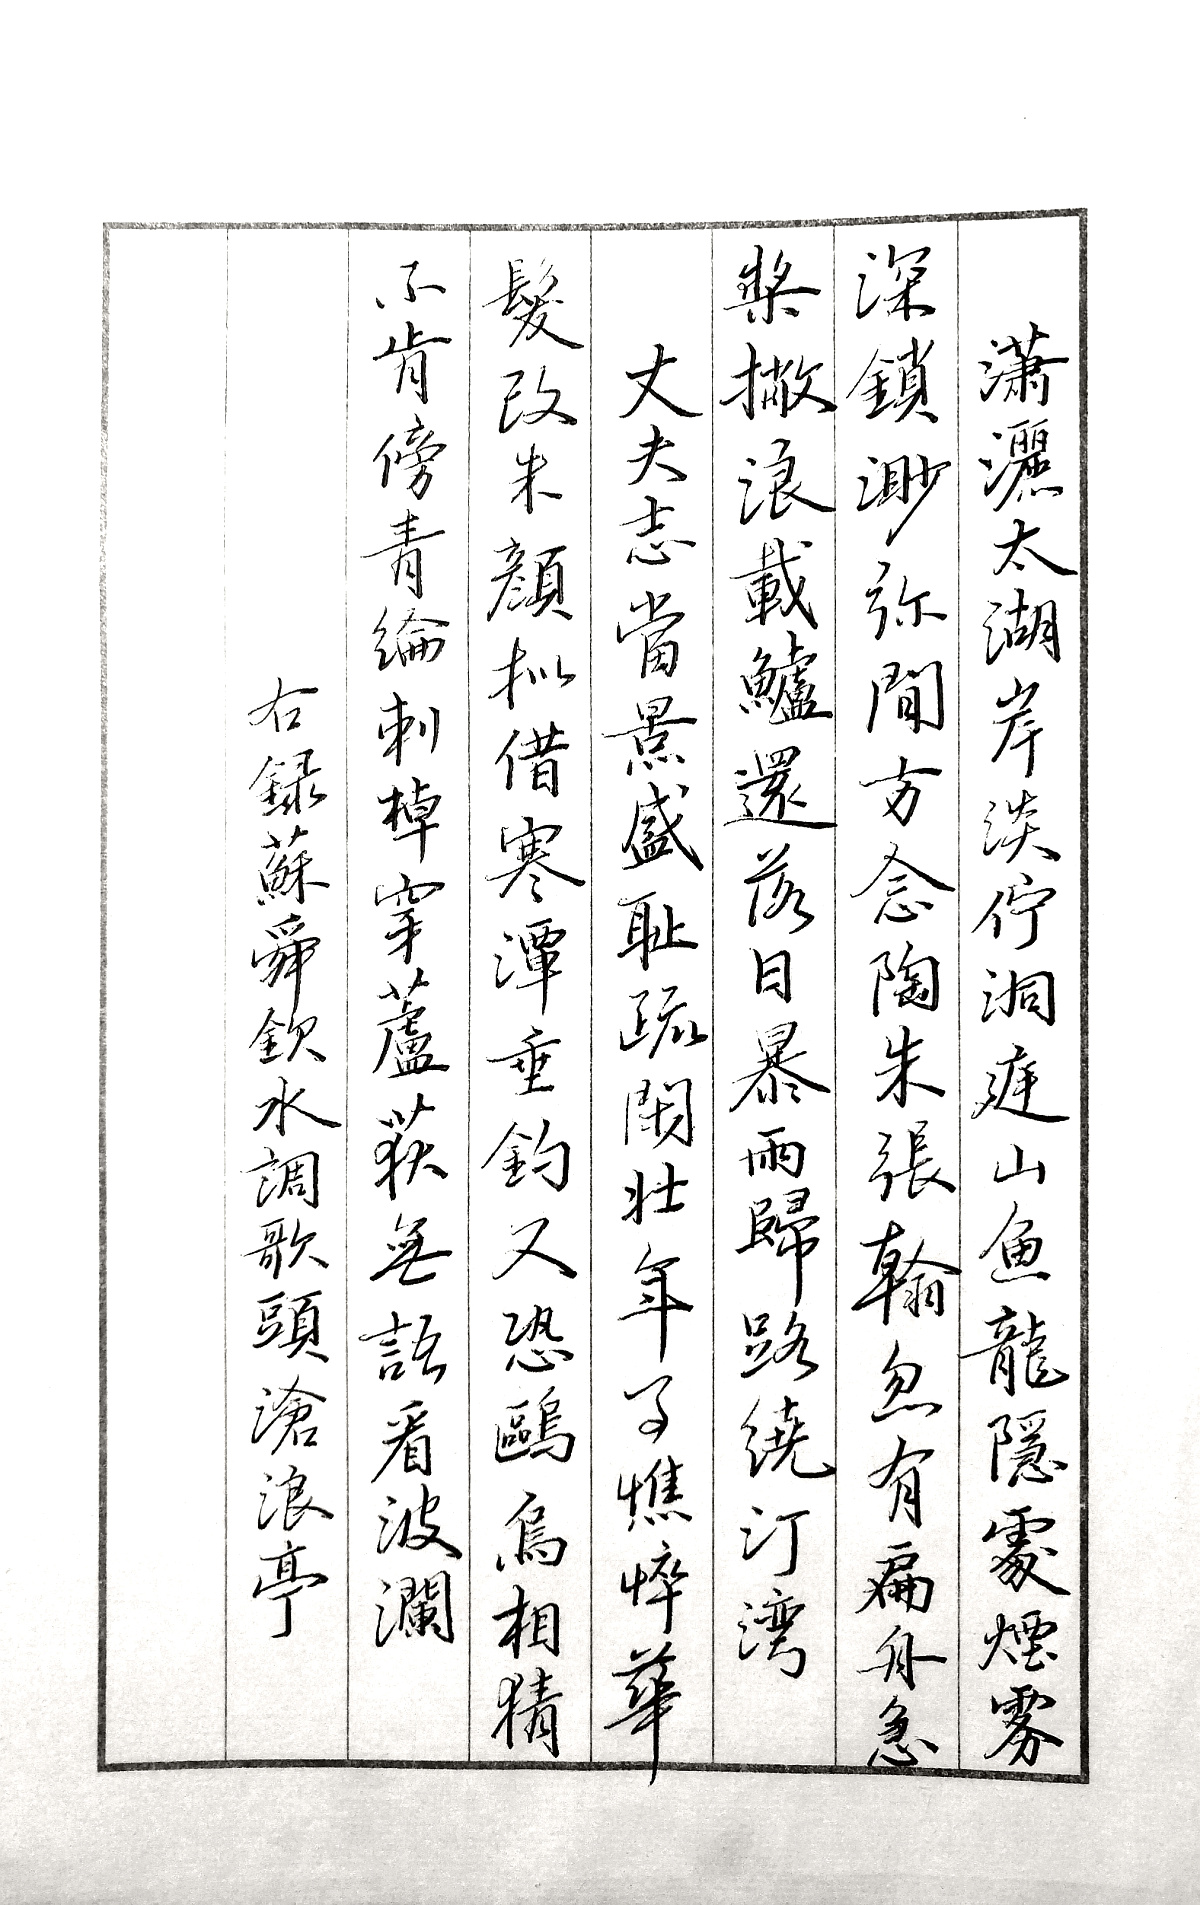 瀟灑太湖岸淡佇洞庭山魚龍隱處煙雾
深鎖渺弥間方念陶朱張翰忽有扁舟急
槳撇浪載鱸還落日暴雨歸路繞汀湾
丈夫志當景盛耻疏閑壮年了憔悴華
髮改朱顏拟借寒潭垂釣又恐鷗鳥相猜
不肯傍青綸刺棹穿蘆荻無語看波瀾
右録蘇舜欽水調歌頭滄浪亭